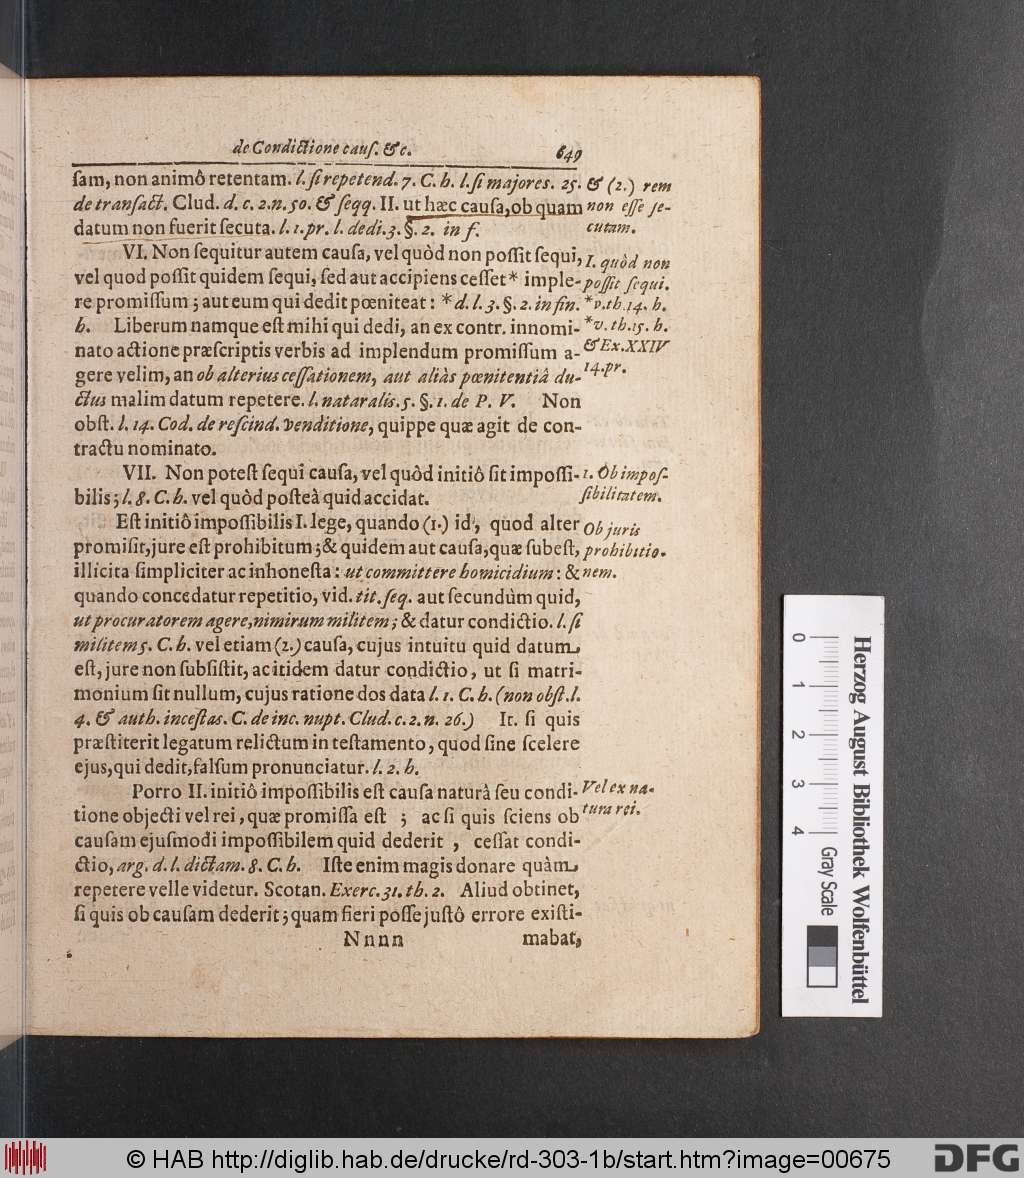 de Condictione cauſ. &c. 649
ſam, non animô retentam. l. ſi repetend. 7. C. h. l. ſi majores. 25. &
de tranſact. Clud. d. c. 2. n. 50. & ſeqq. II. ut hæc cauſa, ob quam
datum non fuerit ſecuta. l. 1. pr. l. dedi. 3. §. 2. in f.
(2.) rem
non eſſe ſe-
cutam.
VI. Non ſequitur autem cauſa, vel quòd non poſſit ſequi,
vel quod poſſit quidem ſequi, ſed aut accipiens ceſſet * imple-
re promiſſum; aut eum qui dedit pœniteat: * d. l. 3. §. 2. in fin.
h. Liberum namque eſt mihi qui dedi, an ex contr. innomi-
nato actione præſcriptis verbis ad implendum promiſſum a-
gere velim, an ob alterius ceſſationem, aut aliàs pœnitentiâ du-
ctus malim datum repetere. l. nataralis. 5. §. 1. de P. V. Non
obſt. l. 14. Cod. de reſcind. venditione, quippe quæ agit de con-
tractu nominato.
I. quòd non
poſſit ſequi.
* v. th. 14. h.
* v. th. 15. h.
& Ex. XXIV
14. pr.
VII. Non poteſt ſequi cauſa, vel quòd initiô ſit impoſſi-
bilis; l. 8. C. h. vel quòd poſteà quid accidat.
1. Ob impoſ-
ſibilitatem.
Eſt initiô impoſſibilis I. lege, quando (1.) id, quod alter
promiſit, jure eſt prohibitum; & quidem aut cauſa, quæ ſubeſt,
illicita ſimpliciter ac inhoneſta: ut committere homicidium: &
quando concedatur repetitio, vid. tit. ſeq. aut ſecundùm quid,
ut procuratorem agere, nimirum militem; & datur condictio. l. ſi
militem 5. C. h. vel etiam (2.) cauſa, cujus intuitu quid datum
eſt, jure non ſubſiſtit, ac itidem datur condictio, ut ſi matri-
monium ſit nullum, cujus ratione dos data l. 1. C. h. (non obſt. l.
4. & auth. inceſtas. C. de inc. nupt. Clud. c. 2. n. 26.) It. ſi quis
præſtiterit legatum relictum in teſtamento, quod ſine ſcelere
ejus, qui dedit, falſum pronunciatur. l. 2. h.
Ob juris
prohibitio-
nem.
Porro II. initiô impoſſibilis eſt cauſa naturâ ſeu condi-
tione objecti vel rei, quæ promiſſa eſt ; ac ſi quis ſciens ob
cauſam ejuſmodi impoſſibilem quid dederit , ceſſat condi-
ctio, arg. d. l. dictam. 8. C. h. Iſte enim magis donare quàm
repetere velle videtur. Scotan. Exerc. 31. th. 2. Aliud obtinet,
ſi quis ob cauſam dederit; quam fieri poſſe juſtô errore exiſti-
Vel ex na-
tura rei.
Nnnn mabat,
0 1 2 3 4
Herzog August Bibliothek Wolfenbüttel
Gray Scale
© HAB http://diglib.hab.de/drucke/rd-303-1b/start.htm?image=00675
DFG